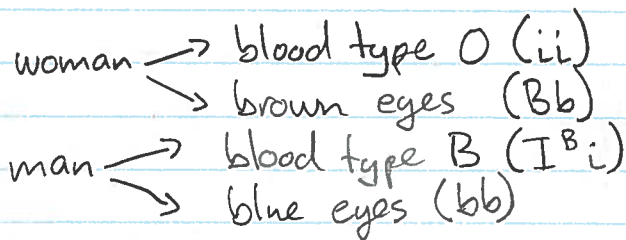 woman → blood type O (ii)
→ brown eyes (Bb)
man → blood type B (Iᴮi)
→ blue eyes (bb)